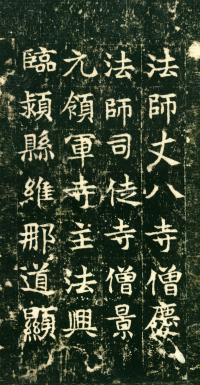 法師丈八寺僧慶
法師司徒寺僧景
元領軍寺主法興
臨潁縣維那道顯